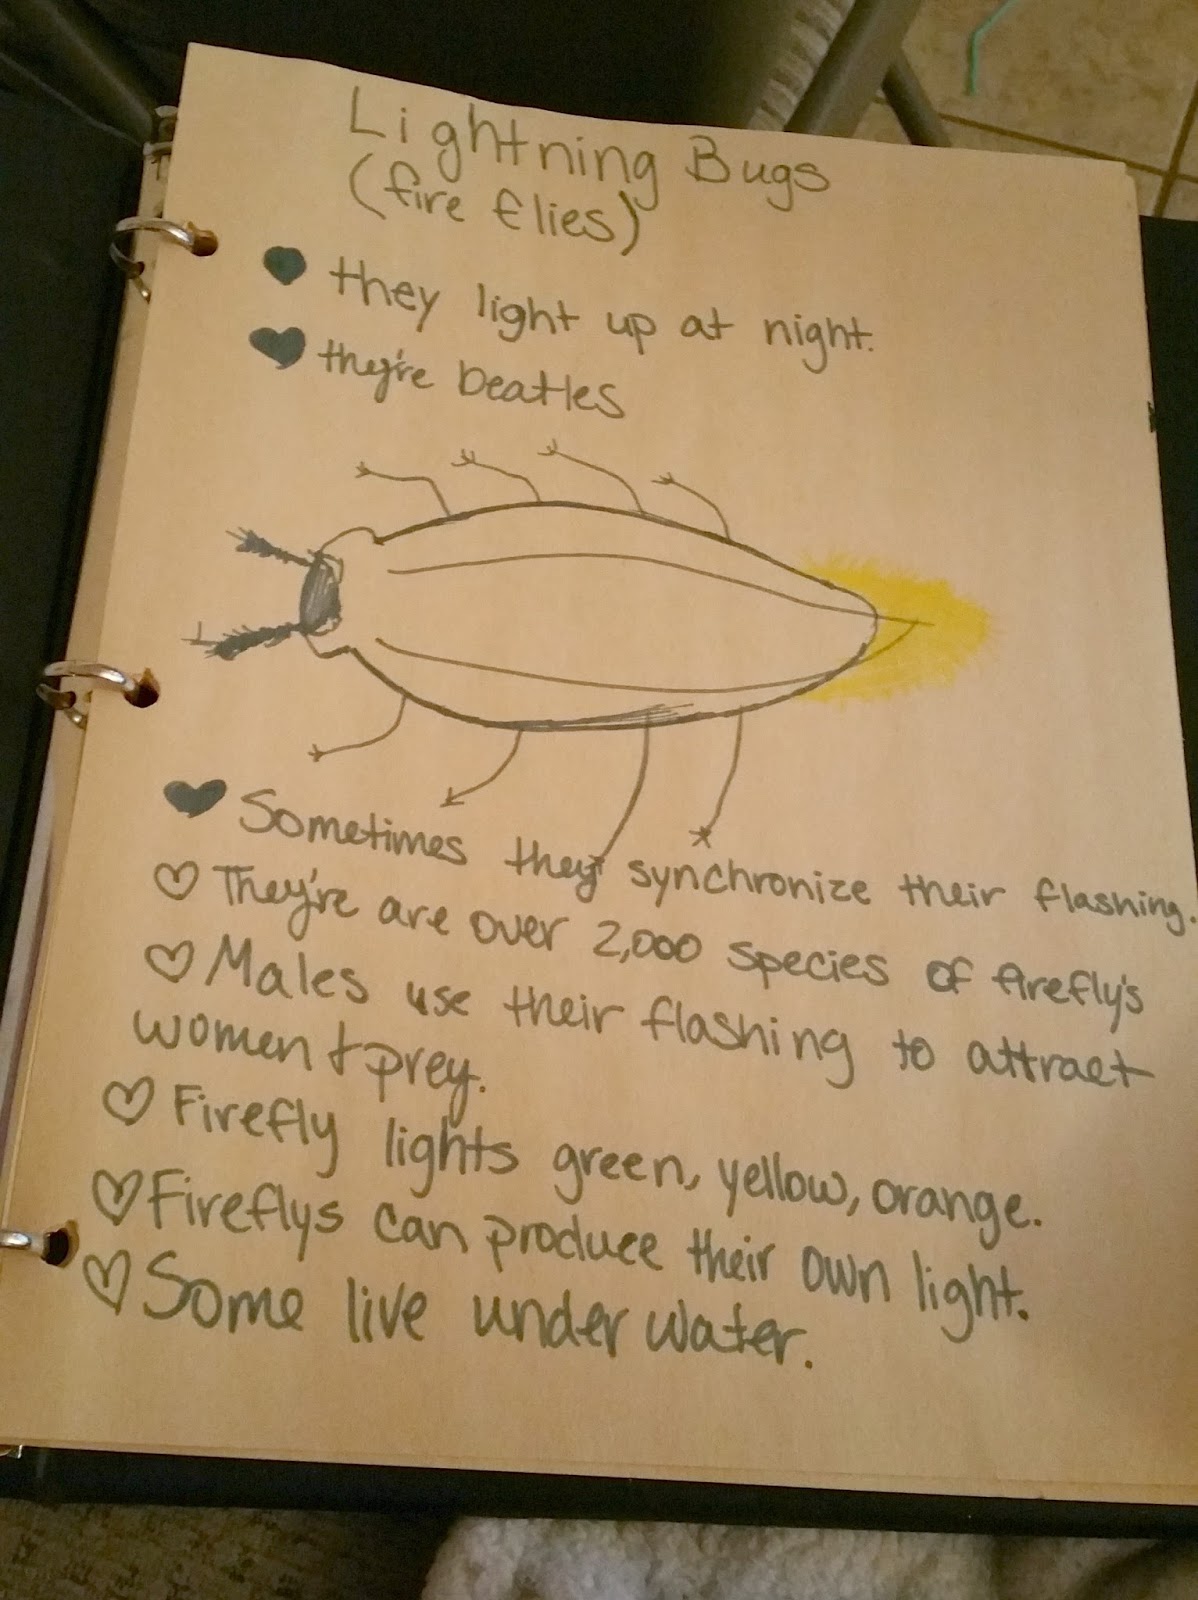 Lightning Bugs
(fire flies)
they light up at night.
they're beatles
Sometimes they synchronize their flashing.
They're are over 2,000 species of firefly's
Males use their flashing to attract
women + prey.
Firefly lights green, yellow, orange.
Fireflys can produce their own light.
Some live under water.